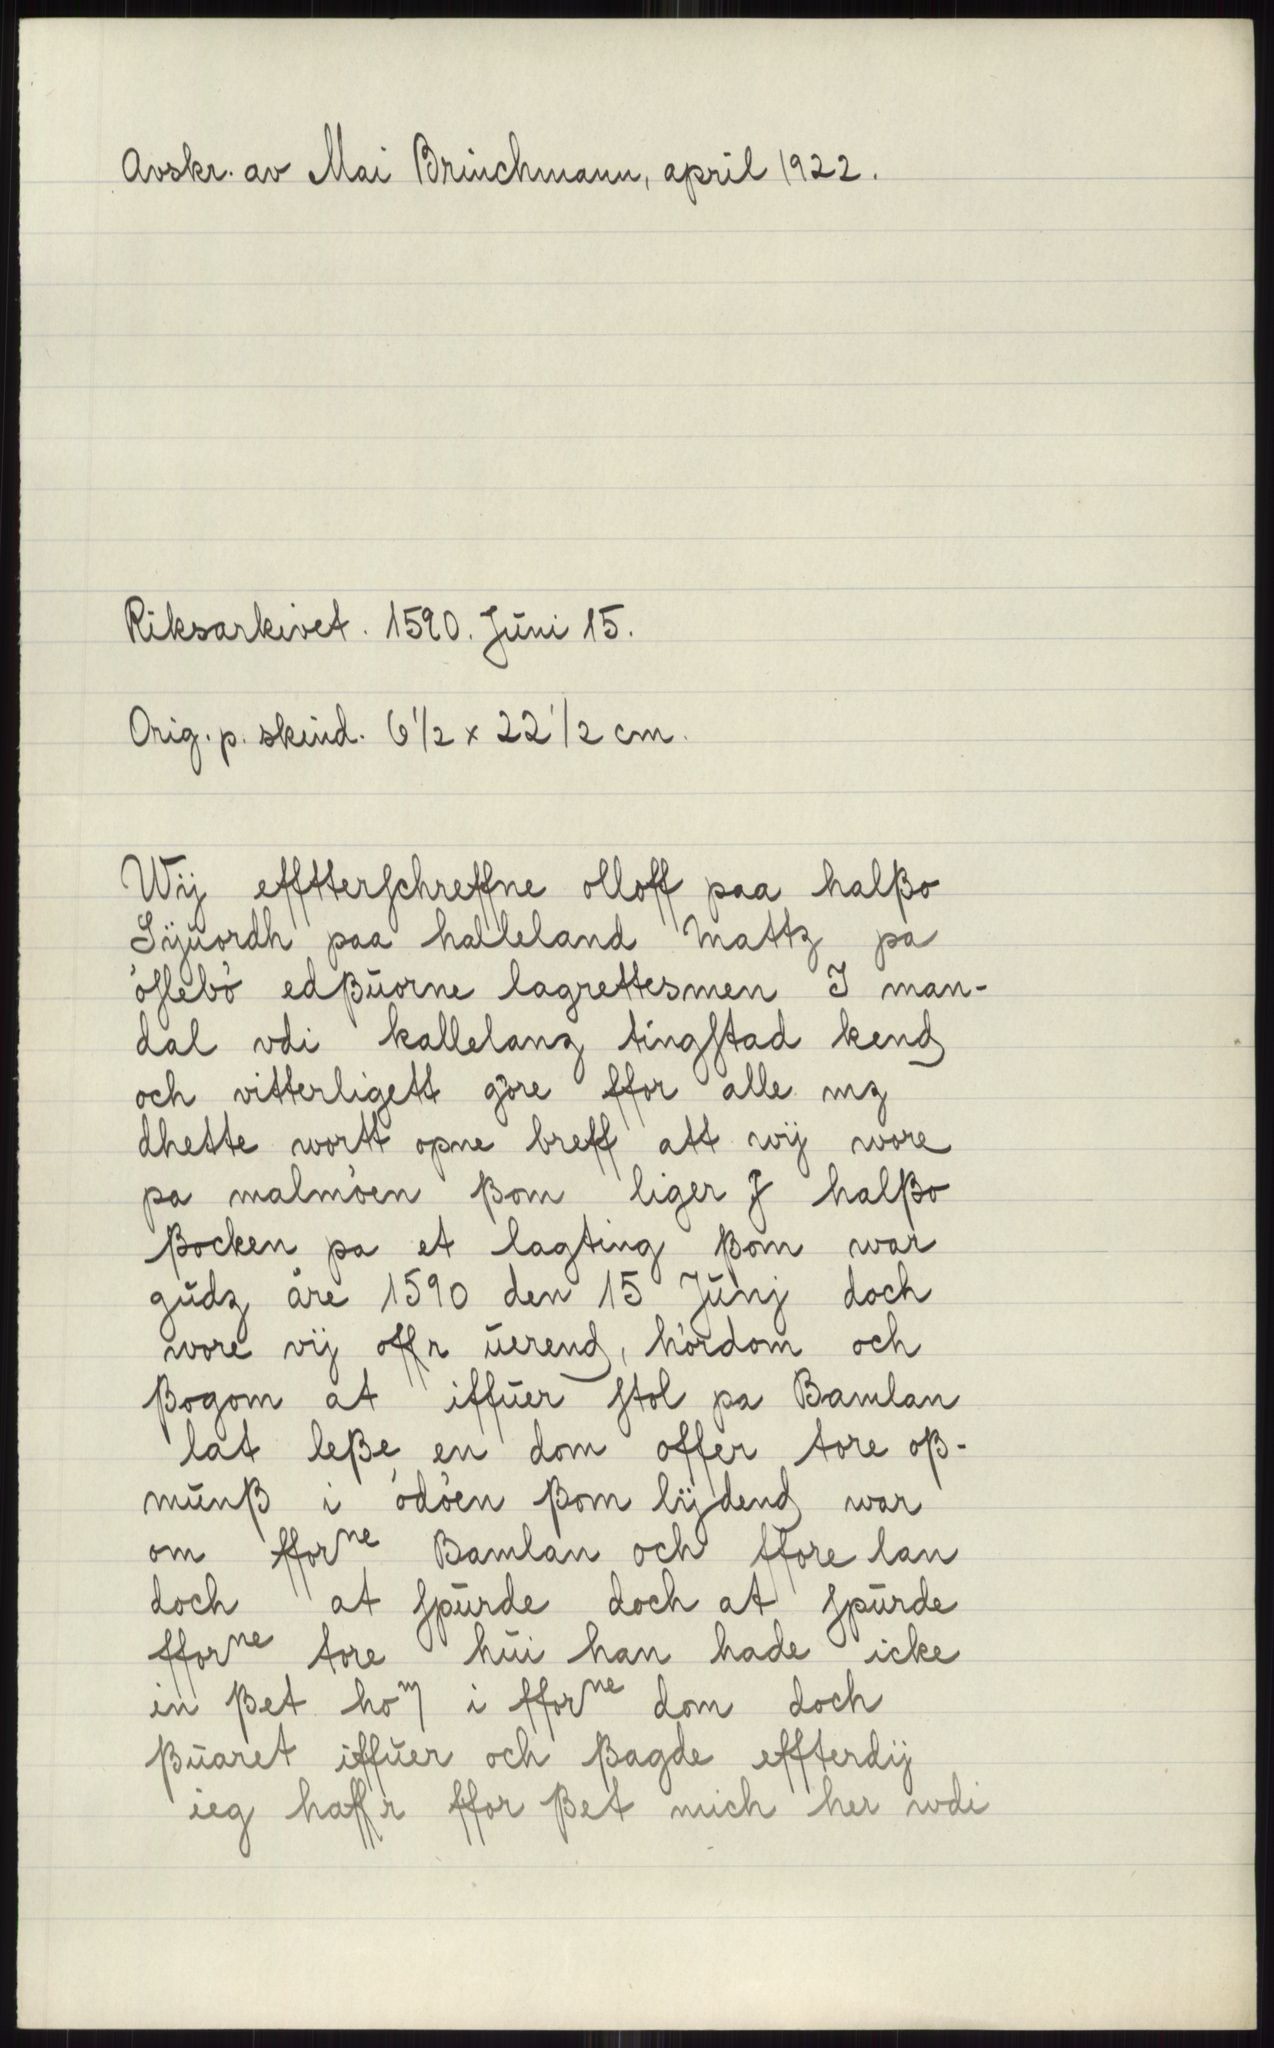 Avskr. av Mai Brinchmann, april 1922.
Riksarkivet. 1590. Juni 15.
Orig. p. skind. 6 1/2 x 22 1/2 cm.
Wij efftterschreffne olloff paa halßo
Sijuordh paa halleland Mattz pa
öslebö edßuorne lagrettesmen I man-
dal vdi kallelanz tingstad kend
och vitterligett göre ffor alle mz
dhette wortt opne breff att wij wore
pa malmöen ßom liger J halßo
ßocken pa et lagting ßom war
gudz åre 1590 den 15 Junj doch
wore vij offr uerend, hördom och
ßogom at iffuer stol pa Bamlan
lat leße en dom offer tore oß-
munß i ödöen ßom lijdend war
om fforne Bamlan och ffore lan
doch at spurde doch at spurde
fforne tore hui han hade icke
in ßet hom i fforne dom doch
ßuaret iffuer och ßagde effterdij
ieg haffr ffor ßet mich her wdi